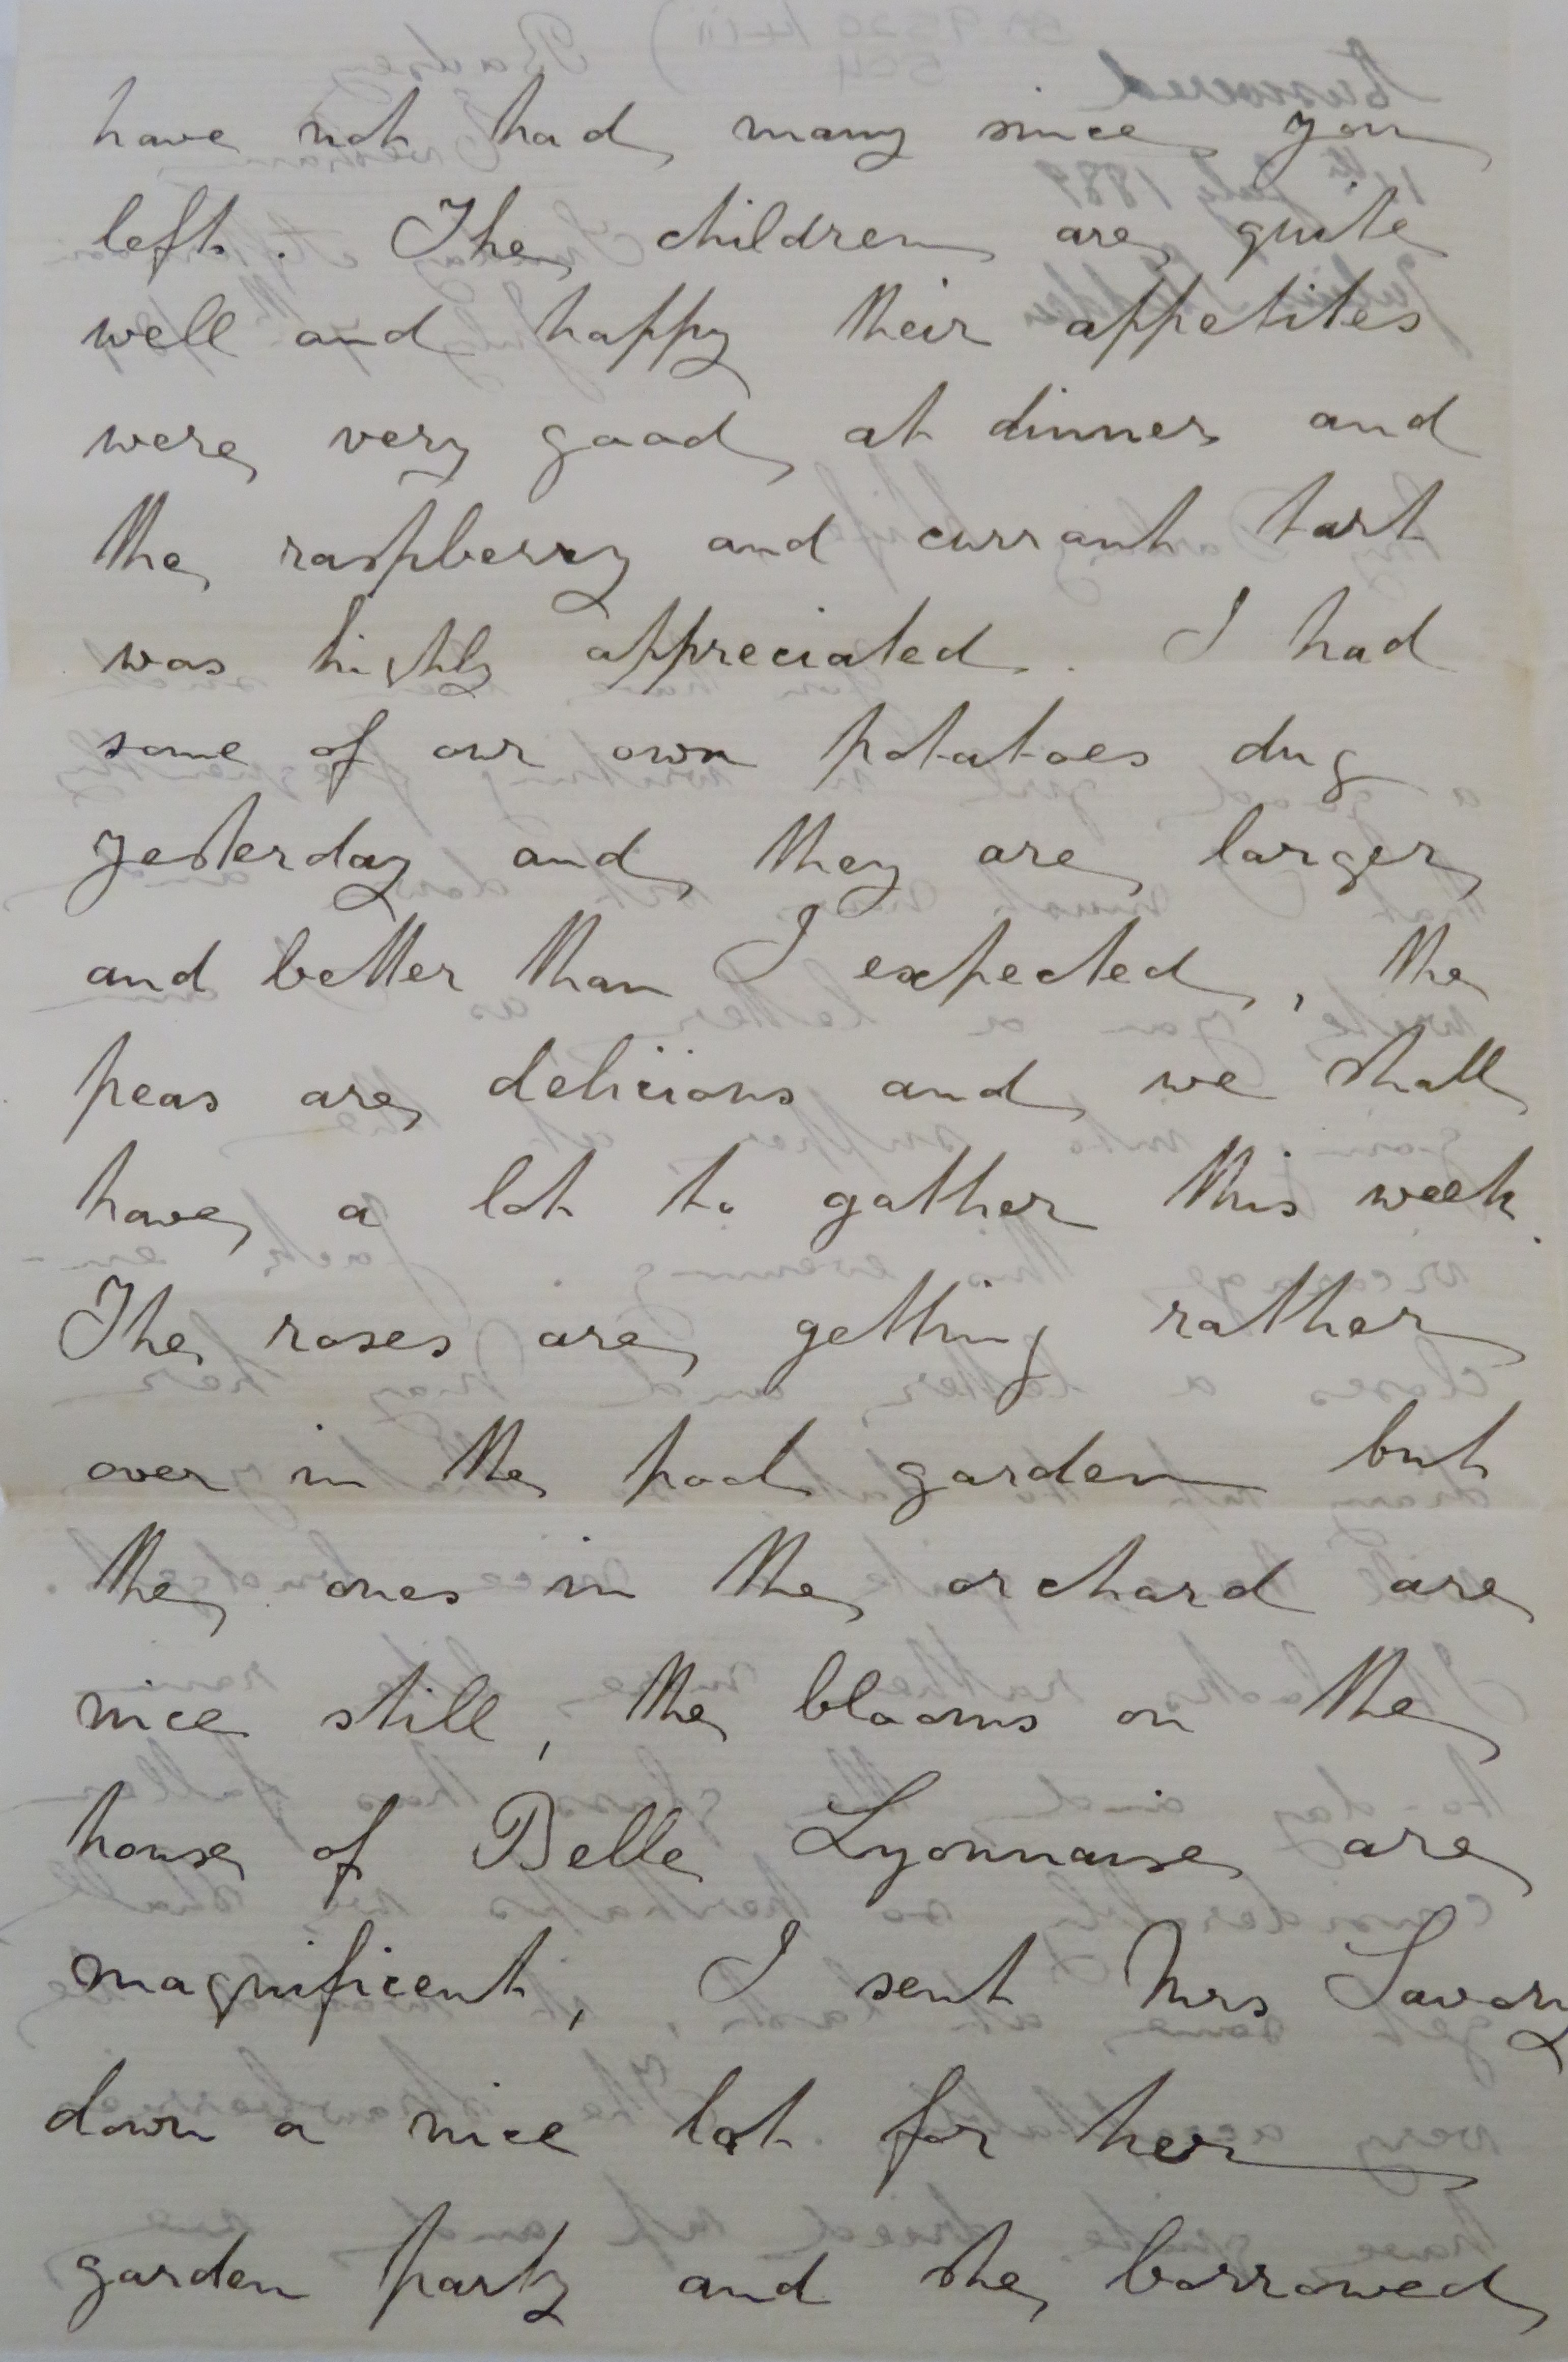 have not had many since you
left. The children are quite
well and happy their appetites
were very good at dinner and
the raspberry and currant tart
was highly appreciated. I had
some of our own potatoes dug
yesterday and they are larger
and better than I expected, the
peas are delicious and we shall
have a lot to gather this week.
The roses are getting rather
over in the pool garden but
the ones in the orchard are
nice still, the blooms on the
house of Belle Lyonnaise are
magnificent, I sent Mrs Savory
down a nice lot for her
garden party and she borrowed